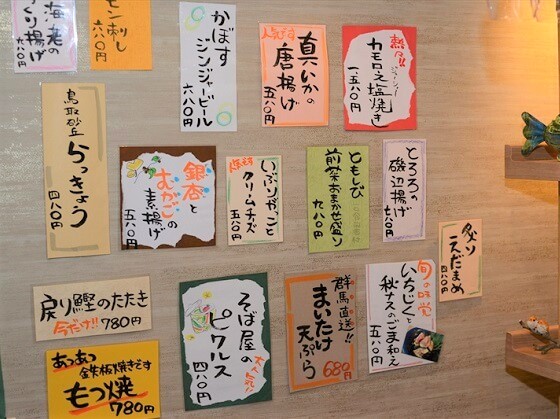 海老の
くり揚げ
九八〇円
モン刺し
六八〇円
かぼす
ジンジャービール
六八〇円
人気です
真いかの
唐揚げ
五八〇円
熱々!!
カモロース塩焼き
一、五八〇円
鳥取砂丘
らっきょう
四八〇円
銀杏と
むかごの
素揚げ
五八〇円
いぶりがっこと
クリームチーズ
五八〇円
ともしび
前菜おまかせ盛り
九八〇円
とろろの
磯辺揚げ
七八〇円
炙り
えだまめ
四八〇円
戻り鰹のたたき
今だけ!! 780円
あつあつ
鉄板焼きです
もつ焼
780円
そば屋の
ピクルス
大人気!!
四八〇円
群馬直送!!
まいたけ
天ぷら
680円
旬の味覚
いちじくと
秋ナスのごま和え
五八〇円